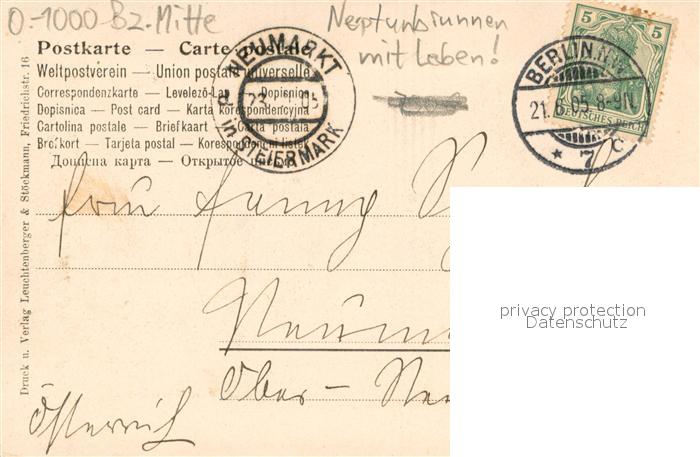 0-1000 Bz. Mitte
Neptunbrunnen
mit Leben!
Postkarte — Carte postale
Weltpostverein — Union postale universelle
Correspondenzkarte — Levelező-Lap — Dopisnice
Dopisnica — Post card — Karta korespondencyjna
Cartolina postale — Briefkaart — Carta postala
Brefkort — Tarjeta postal — Korespondencni listek
Дописна карта — Открытое
NEUMARKT
in STEIERMARK
5 5
DEUTSCHES REICH
BERLIN.N.W.
21.6.05.8-9N.
* 7 c
Frau Fanny
Neum
Ober-
Österreich
Druck u. Verlag Leuchtenberger & Stöckmann, Friedrichstr. 16
privacy protection
Datenschutz